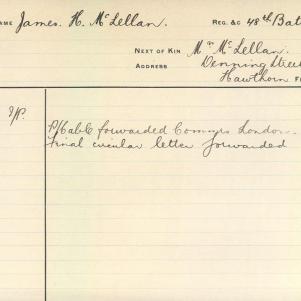 NAME James. H. McLellan. REG. &C 48th Bat
NEXT OF KIN Mr McLellan.
ADDRESS Denning Street
Hawthorn
I/P. P/Cable forwarded Commrs London.
Final circular letter forwarded